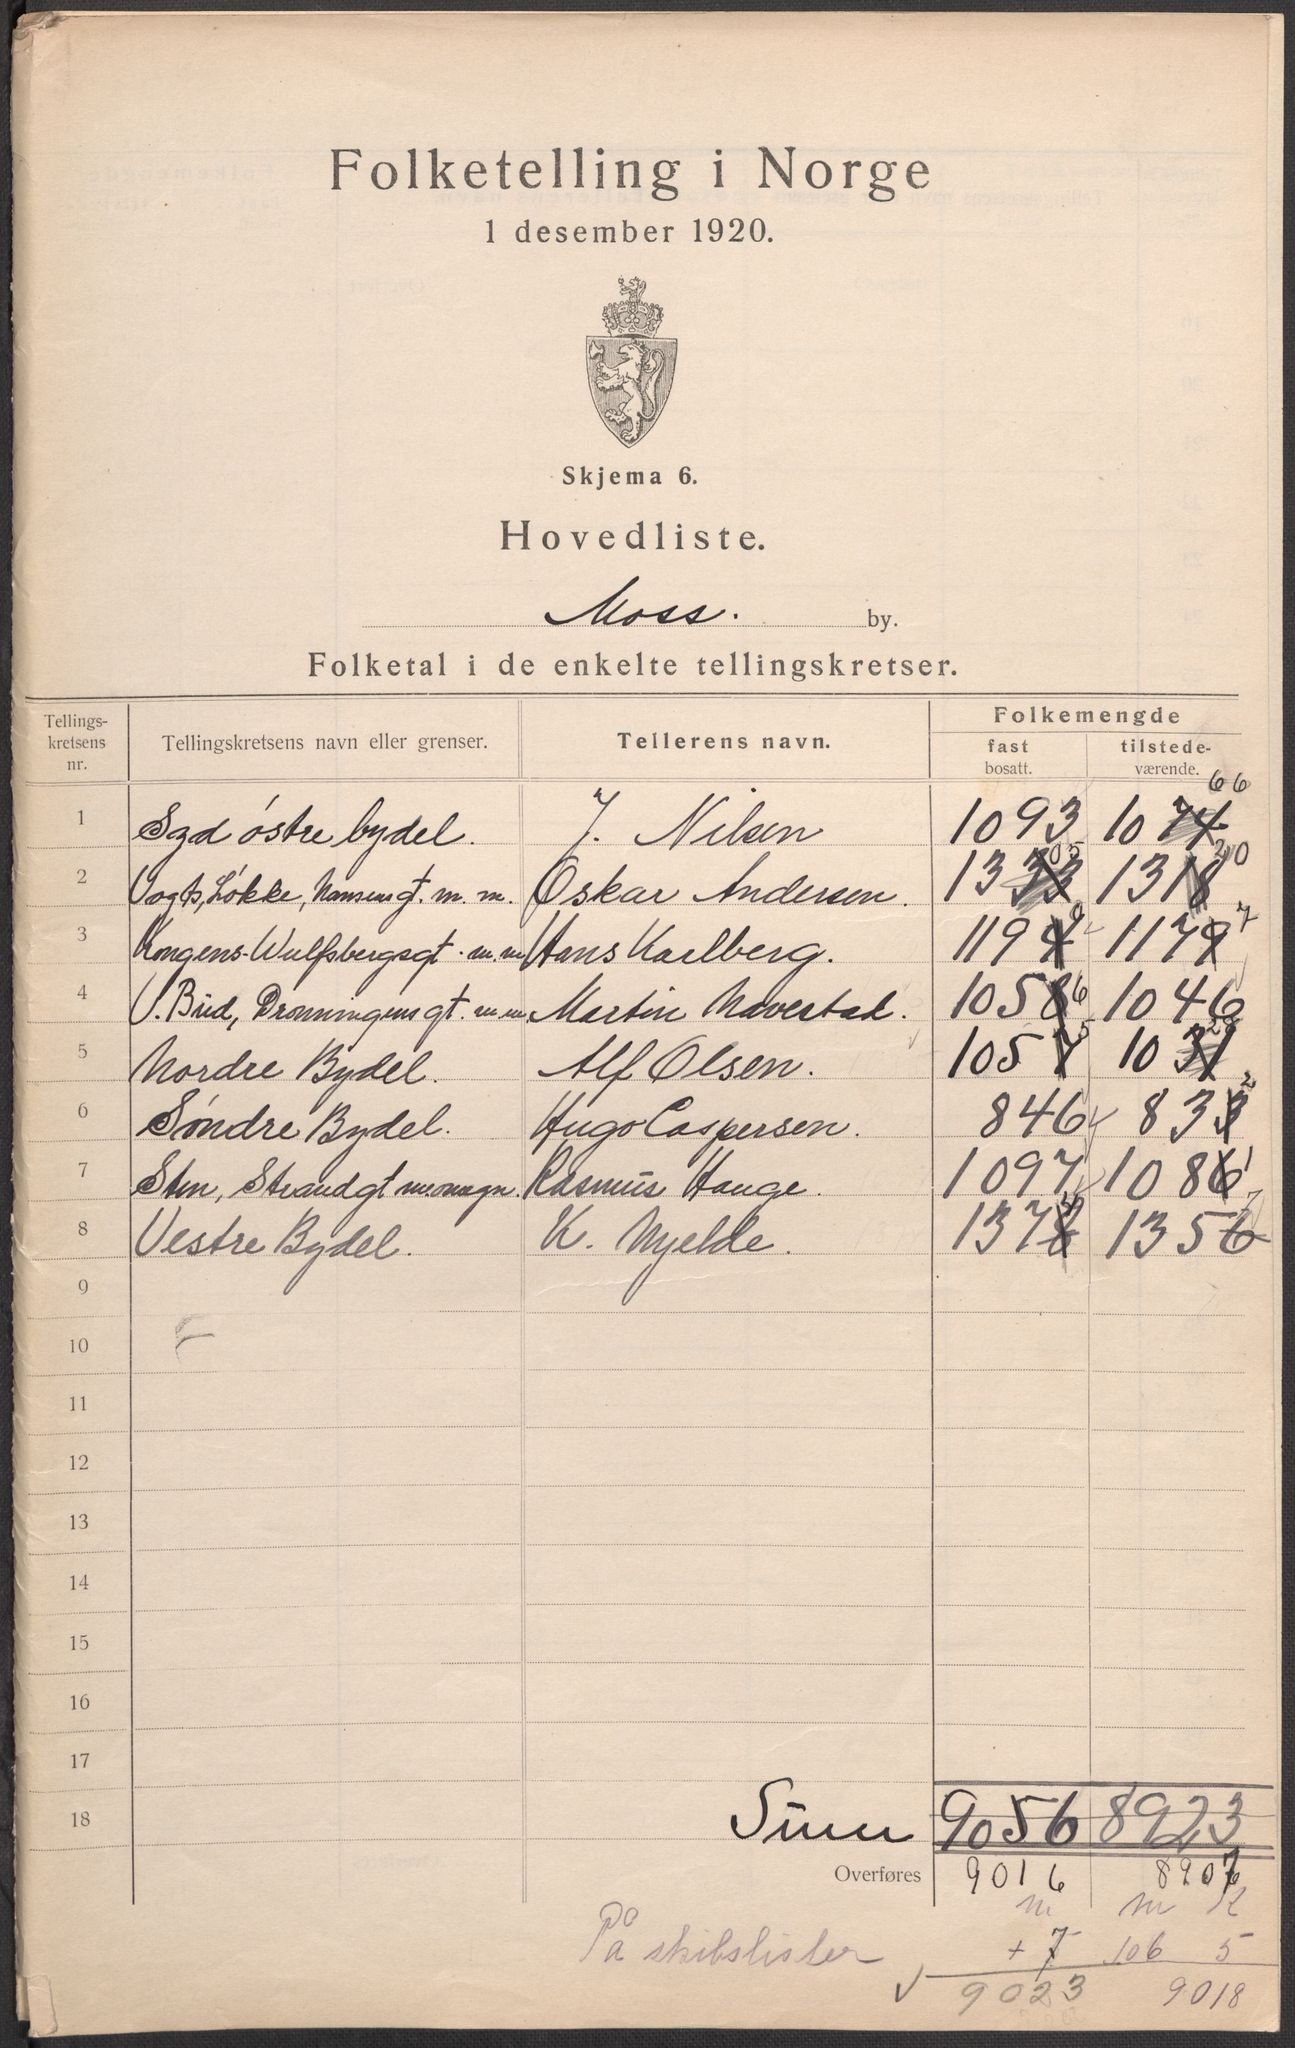 Folketelling i Norge
1 desember 1920.
Skjema 6.
Hovedliste.
Moss. by.
Folketal i de enkelte tellingskretser.
Tellings-
kretsens
nr.
Tellingskretsens navn eller grenser.
Tellerens navn.
Folkemengde
fast
bosatt.
tilstede-
værende.
66
1 Syd østre bydel. J. Nilsen 1093 1074
05 20
2 Vogts, Løkke, Nansensgt. m. m. Oskar Andersen. 1333 1318
7
3 Kongens-Wulfsbergsgt. m.m Hans Karlberg. 1194 1179
4 V. Brid, Dronningensgt. m m Martin Navestad. 1058 6 1046
5 28
5 Nordre Bydel. Alf Olsen. 1057 1031
2
6 Søndre Bydel. Hugo Caspersen. 846 833
1
7 Sten, Strandgt m. omegn. Rasmus Hauge. 1097 1086
7
8 Vestre Bydel. K. Myelde. 1378 1356
9
10
11
12
13
14
15
16
17
18 Sum 9056 8923
Overføres 9016 8907
m m K
På skibslister + 7 106 5
9023 9018